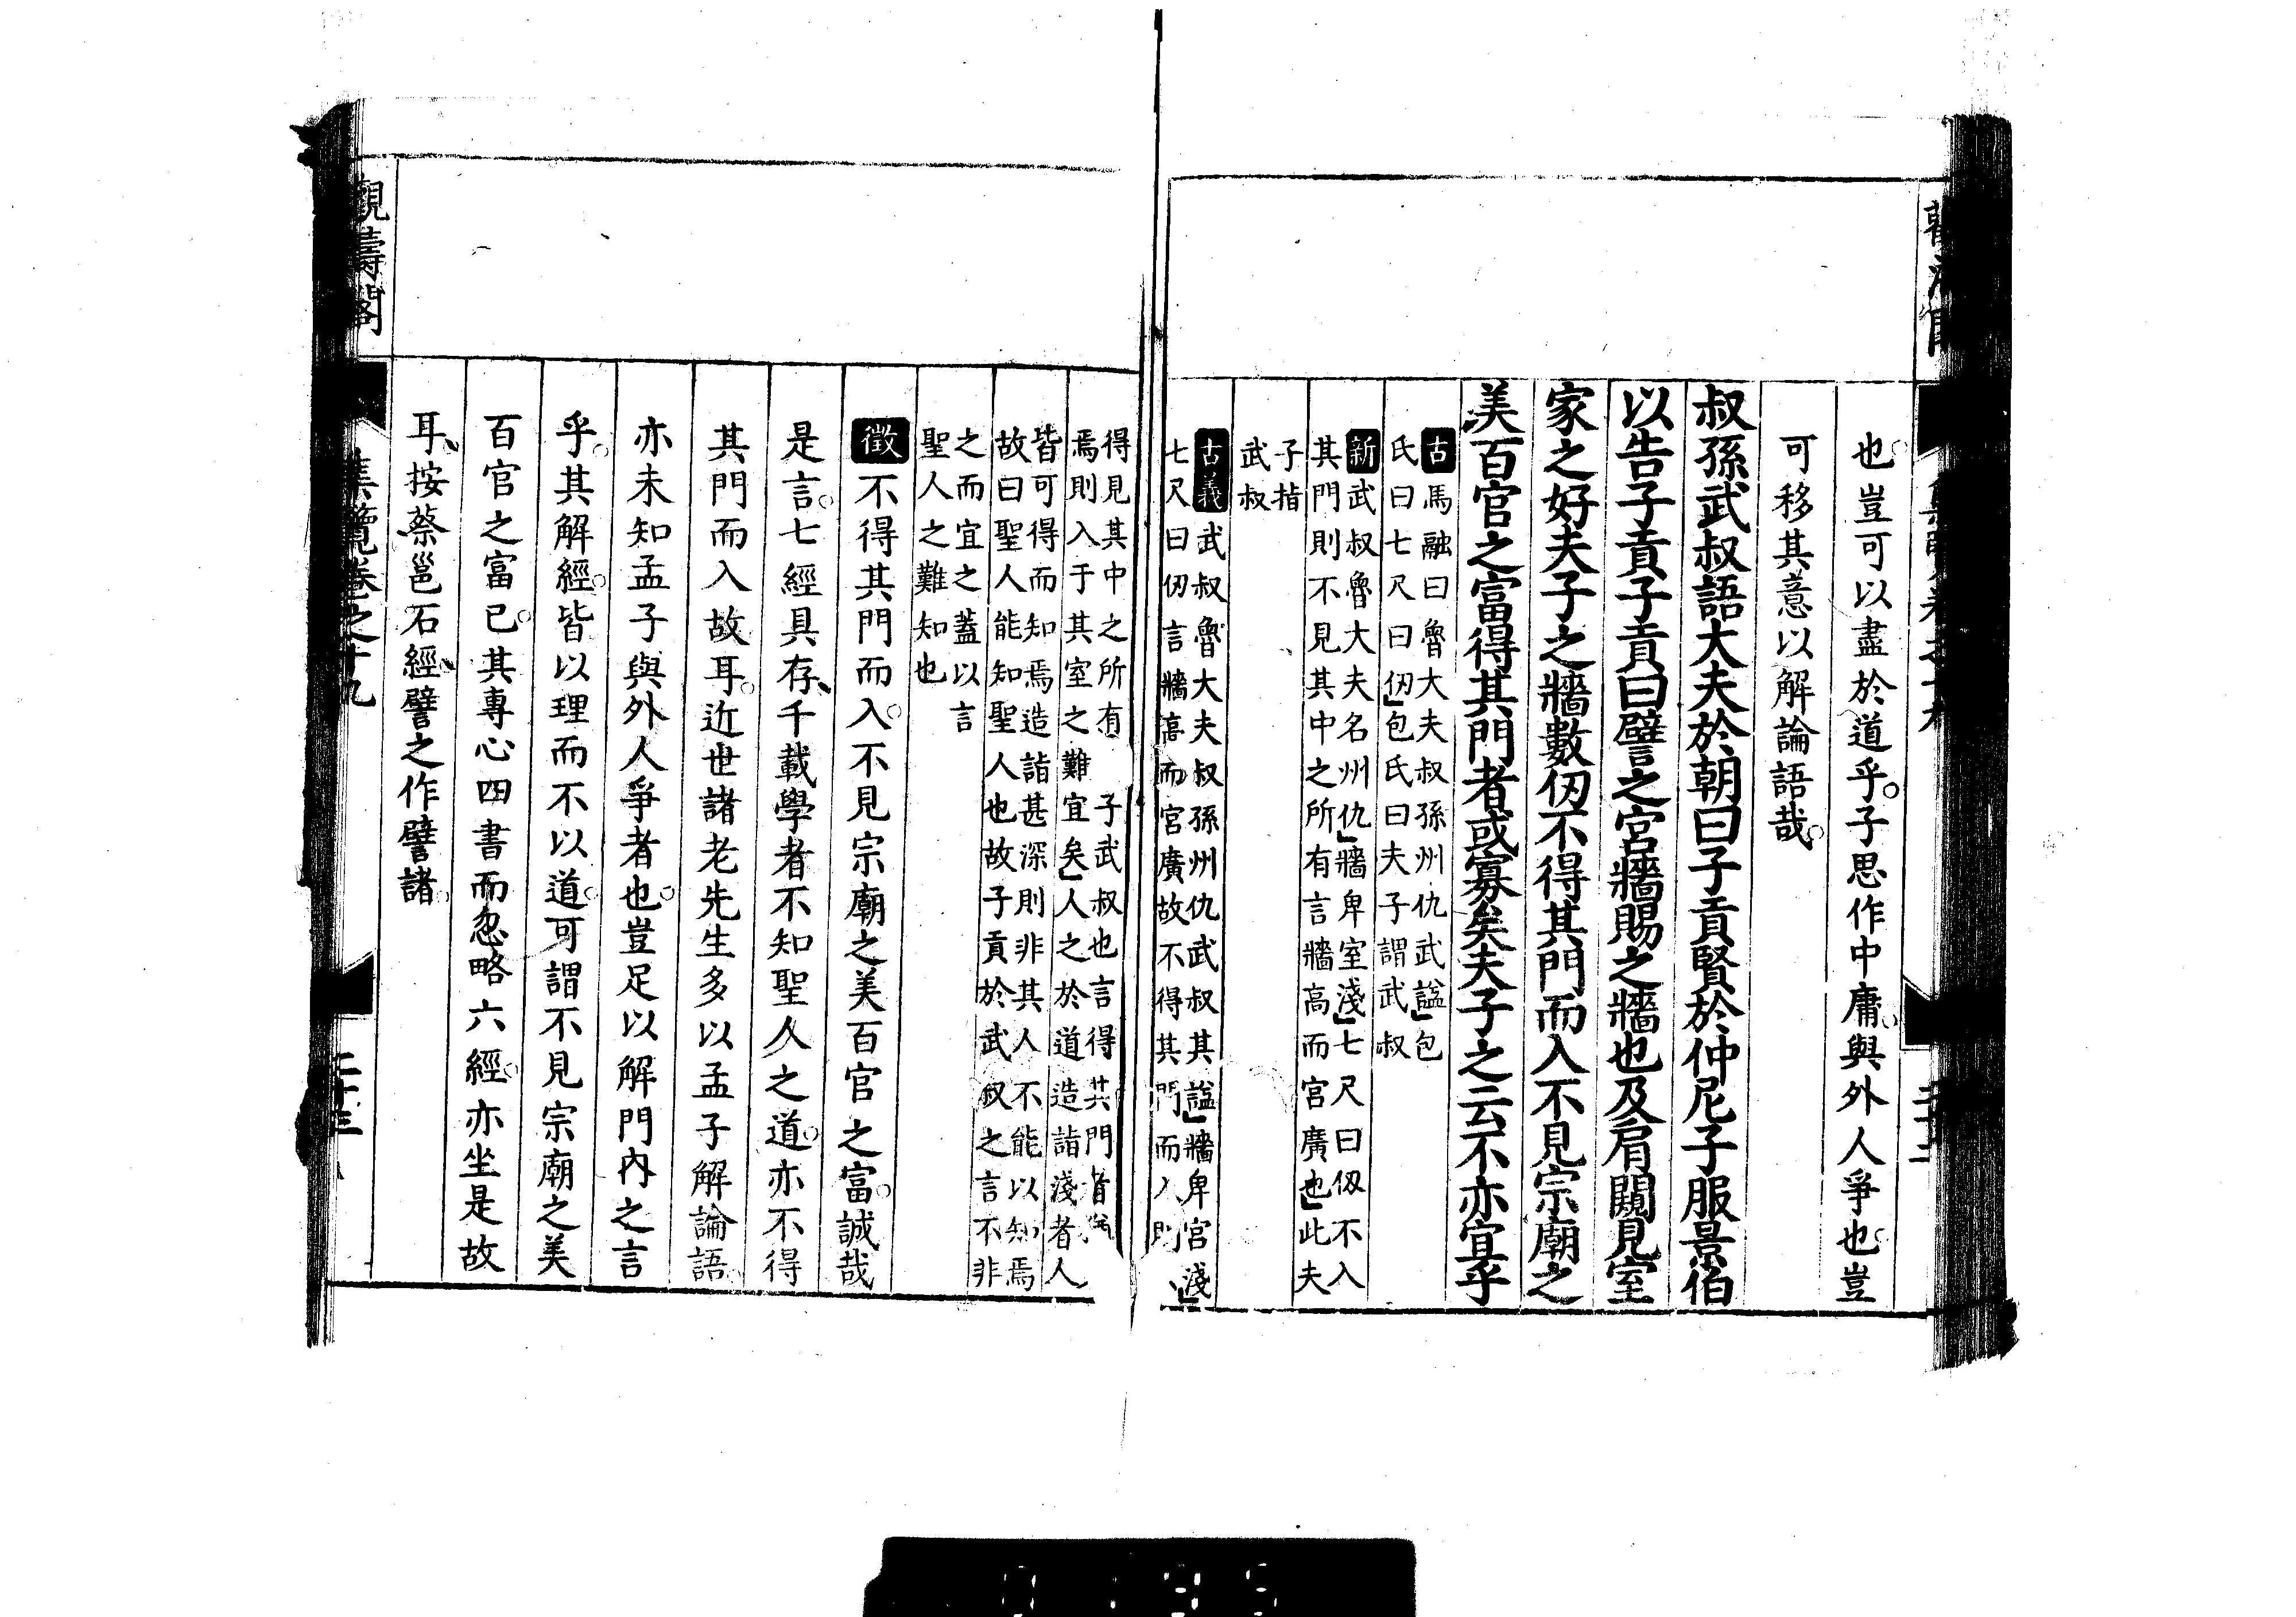 也豈可以盡於道乎。子思作中庸。與外人爭也。豈
可移其意以解論語哉。
叔孫武叔語大夫於朝曰子貢賢於仲尼子服景伯
以告子貢子貢曰譬之宮牆賜之牆也及肩闚見室
家之好夫子之牆數仞不得其門而入不見宗廟之
美百官之富得其門者或寡矣夫子之云不亦宜乎
古馬融曰魯大夫叔孫州仇武謚」包
氏曰七尺曰仞」包氏曰夫子謂武叔
新武叔魯大夫名州仇」牆卑室淺」七尺曰仭不入
其門則不見其中之所有言牆高而宮廣也」此夫
子指
武叔
古義武叔魯大夫叔孫州仇武叔其謚」牆卑宮淺」
七尺曰仞言牆高而宮廣故不得其門而入則
得見其中之所有 子武叔也言得其門者
焉則入于其室之難宜矣」人之於道造詣淺者人
皆可得而知焉造詣甚深則非其人不能以知焉
故曰聖人能知聖人也故子貢於武叔之言不非
之而宜之蓋以言
聖人之難知也
徵不得其門而入。不見宗廟之美百官之富。誠哉
是言。七經具存、千載學者不知聖人之道。亦不得
其門而入故耳。近世諸老先生多以孟子解論語。
亦未知孟子與外人爭者也。豈足以解門內之言
乎。其解經。皆以理而不以道。可謂不見宗廟之美
百官之富已。其專心四書而忽略六經。亦坐是故
耳、按蔡邕石經、譬之作譬諸。
觀濤閣
集覽卷之十九
二十三